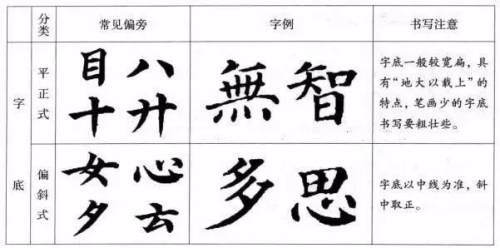 分类 常见偏旁 字例 书写注意
字底
平正式
目 八
十 廾
無 智
字底一般较宽扁，具
有“地大以载上”的
特点，笔画少的字底
书写要粗壮些。
偏斜式
女 心
夕 云
多 思
字底以中线为准，斜
中取正。